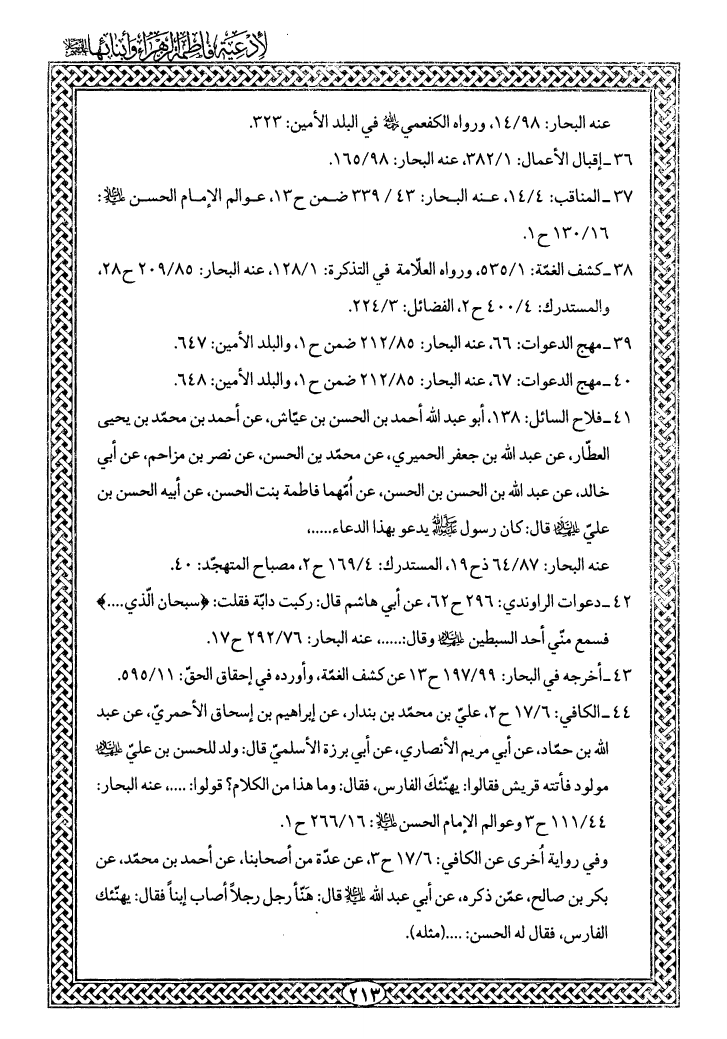 لأدعية فاطمة الزهراء وأبنائها عليهم السلام
عنه البحار: ١٤/٩٨، ورواه الكفعمي رحمه الله في البلد الأمين: ٣٢٣.
٣٦ ـ إقبال الأعمال: ٣٨٢/١، عنه البحار: ١٦٥/٩٨.
٣٧ ـ المناقب: ١٤/٤، عـنه البـحار: ٤٣ / ٣٣٩ ضـمن ح١٣، عـوالم الإمـام الحسـن عليه السلام:
١٣٠/١٦ ح١.
٣٨ ـ كشف الغمّة: ٥٣٥/١، ورواه العلّامة في التذكرة: ١٢٨/١، عنه البحار: ٢٠٩/٨٥ ح٢٨،
والمستدرك: ٤٠٠/٤ ح٢، الفضائل: ٢٢٤/٣.
٣٩ ـ مهج الدعوات: ٦٦، عنه البحار: ٢١٢/٨٥ ضمن ح١، والبلد الأمين: ٦٤٧.
٤٠ ـ مهج الدعوات: ٦٧، عنه البحار: ٢١٢/٨٥ ضمن ح١، والبلد الأمين: ٦٤٨.
٤١ ـ فلاح السائل: ١٣٨، أبو عبد الله أحمد بن الحسن بن عيّاش، عن أحمد بن محمّد بن يحيى
العطّار، عن عبد الله بن جعفر الحميري، عن محمّد بن الحسن، عن نصر بن مزاحم، عن أبي
خالد، عن عبد الله بن الحسن بن الحسن، عن اُمّهما فاطمة بنت الحسن، عن أبيه الحسن بن
عليّ عليهما السلام قال: كان رسول صلى الله عليه وآله يدعو بهذا الدعاء.....،
عنه البحار: ٦٤/٨٧ ذح١٩، المستدرك: ١٦٩/٤ ح٢، مصباح المتهجّد: ٤٠.
٤٢ ـ دعوات الراوندي: ٢٩٦ ح٦٢، عن أبي هاشم قال: ركبت دابّة فقلت: ﴿سبحان الّذي....﴾
فسمع منّي أحد السبطين عليهما السلام وقال:.....، عنه البحار: ٢٩٢/٧٦ ح١٧.
٤٣ ـ أخرجه في البحار: ١٩٧/٩٩ ح١٣ عن كشف الغمّة، وأورده في إحقاق الحقّ: ٥٩٥/١١.
٤٤ ـ الكافي: ١٧/٦ ح٢، عليّ بن محمّد بن بندار، عن إبراهيم بن إسحاق الأحمريّ، عن عبد
الله بن حمّاد، عن أبي مريم الأنصاري، عن أبي برزة الأسلميّ قال: ولد للحسن بن عليّ عليهما السلام
مولود فأتته قريش فقالوا: يهنّئكَ الفارس، فقال: وما هذا من الكلام؟ قولوا: ....، عنه البحار:
١١١/٤٤ ح٣ وعوالم الإمام الحسن عليه السلام: ٢٦٦/١٦ ح١.
وفي رواية اُخرى عن الكافي: ١٧/٦ ح٣، عن عدّة من أصحابنا، عن أحمد بن محمّد، عن
بكر بن صالح، عمّن ذكره، عن أبي عبد الله عليه السلام قال: هَنّأ رجل رجلاً أصاب إبناً فقال: يهنّئك
الفارس، فقال له الحسن: ....(مثله).
٢١٣